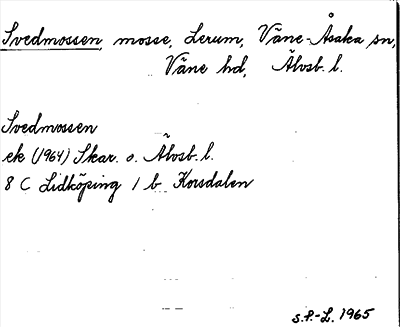 Svedmossen, mosse, Lerum, Väne-Åsaka sn,
Väne hd, Älvsb. l.
Svedmossen
ek (1964) Skar. o. Älvsb. l.
8 C Lidköping 1 b Korsdalen
S.P.-L. 1965